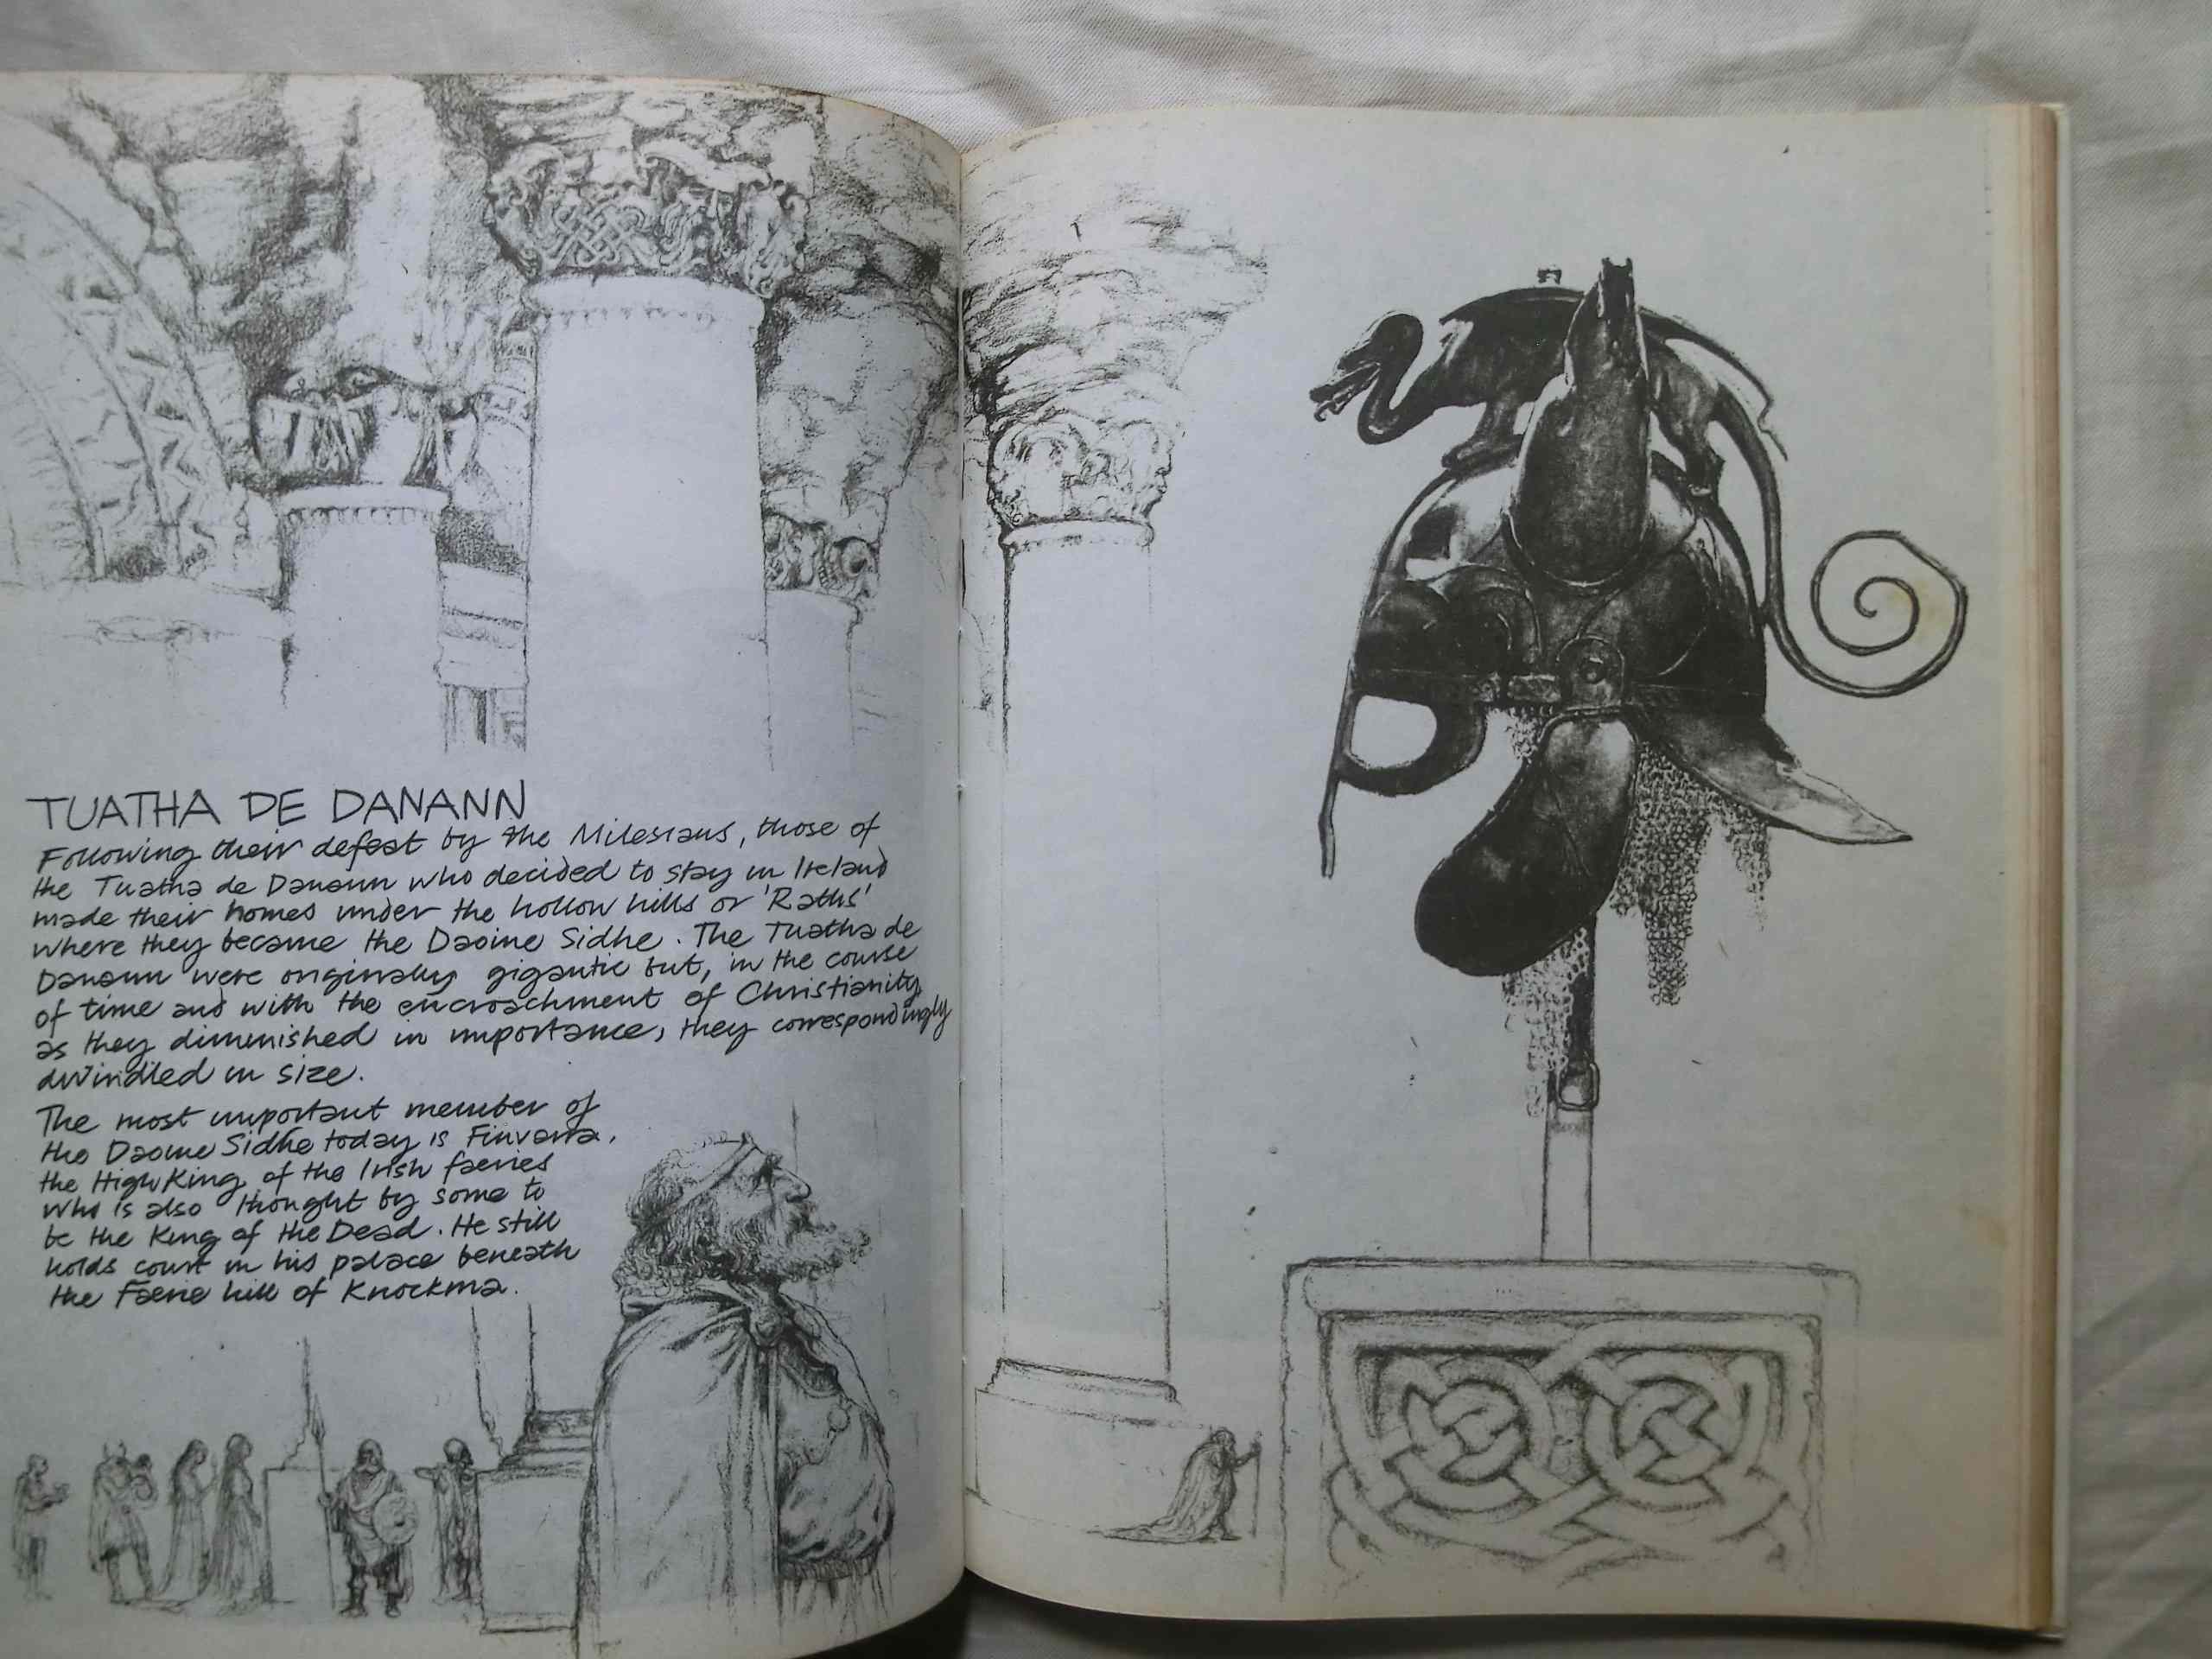 TUATHA DE DANANN
Following their defeat by the Milesians, those of
the Tuatha de Danann who decided to stay in Ireland
made their homes under the hollow hills or 'Raths'
where they became the Daoine Sidhe. The Tuatha de
Danann were originally gigantic but, in the course
of time and with the encroachment of Christianity,
as they diminished in importance, they correspondingly
dwindled in size.
The most important member of
the Daoine Sidhe today is Finvarra,
the High King of the Irish faeries
who is also thought by some to
be the King of the Dead. He still
holds court in his palace beneath
the Faerie hill of Knockma.